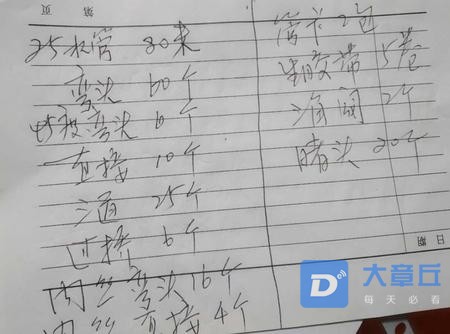 第 页
25水管 80米
弯头 60个
45度弯头 6个
直接 10个
三通 25个
过桥 6个
内丝弯头 16个
内丝直接 4个
管卡 2包
生胶带 5卷
角阀 2个
堵头 20个
日期
大章丘
每天必看